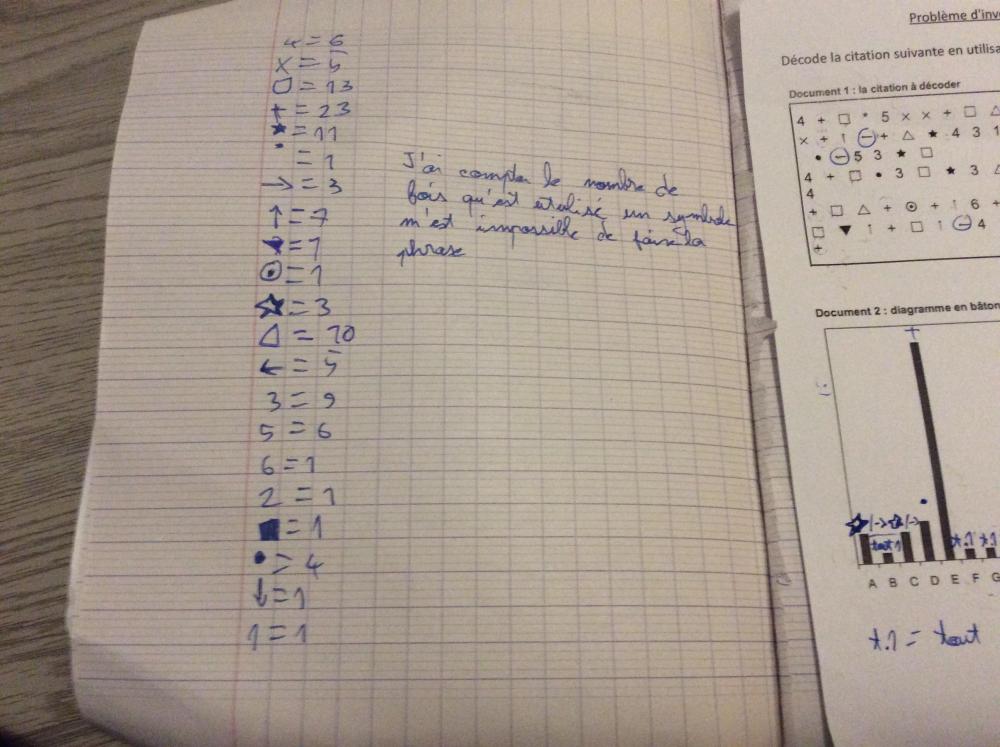 4 = 6
× = 5
□ = 13
+ = 23
★ = 11
• = 1
→ = 3
↑ = 7
▼ = 1
⊙ = 1
☆ = 3
△ = 10
← = 5
3 = 9
5 = 6
6 = 1
2 = 1
■ = 1
• = 4
↓ = 1
1 = 1
J'ai compter le nombre de
fois qu'est utulisé un symbole
m'est impossible de faire la
phrase
Problème d'inv
Décode la citation suivante en utilisa
Document 1 : la citation à décoder
4 + □ * 5 × × + □ △
× + ↑ ⊖ + △ ★ 4 3 1
• ⊖ 5 3 ★ □
4 + □ • 3 □ ★ 3 △
4
+ □ △ + ⊙ + ↑ 6 +
□ ▼ ↑ + □ ↑ ⊖ 4
+
Document 2 : diagramme en bâton
+
☆ /-> ☆ /->
tout 1
t.1 t.1
A B C D E F G
t.1 = tout